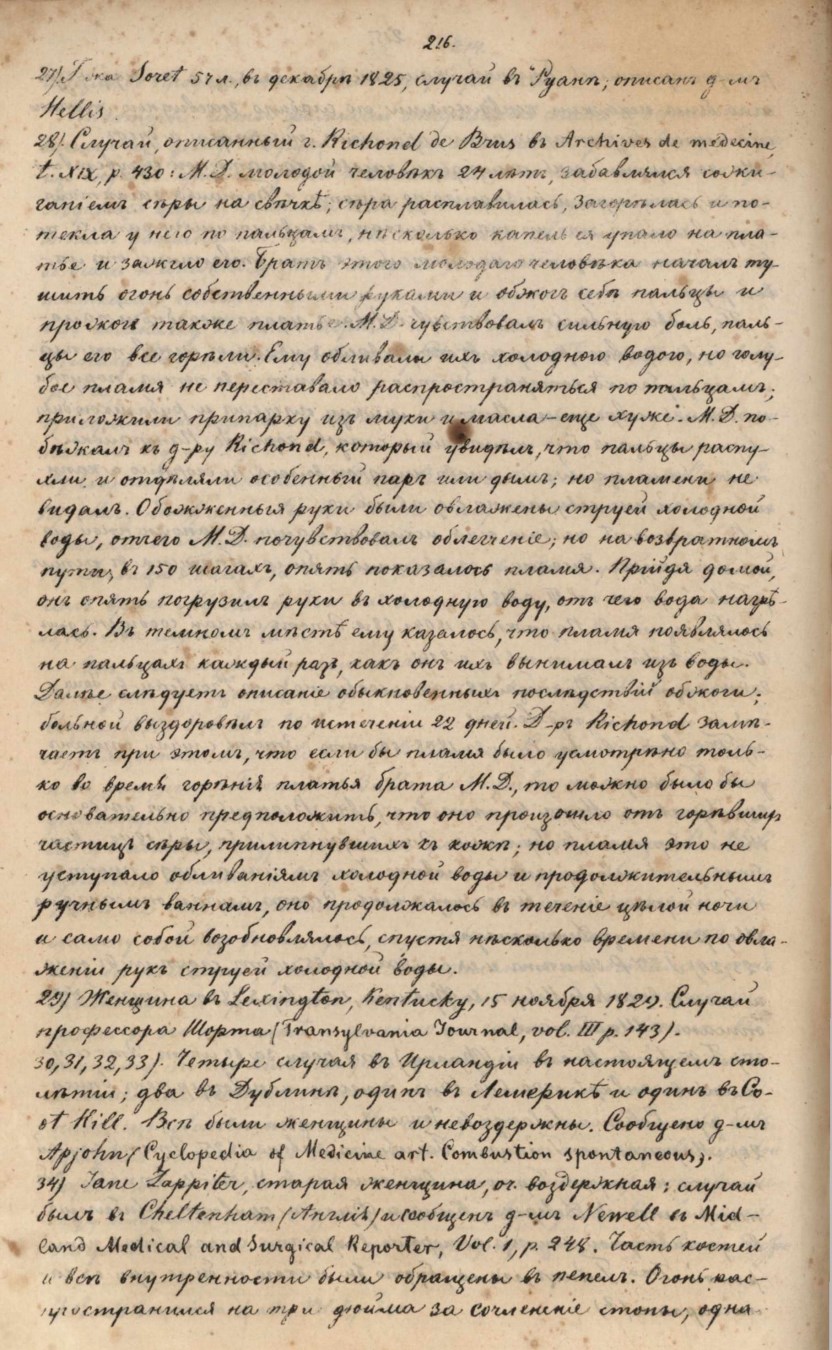 216.
27) Г-жа Soret 57 л., въ декабрѣ 1825, случай въ Руанѣ; описанъ д-мъ
Hellis.
28) Случай, описанный г. Richond de Brus въ Archives de medecine,
t. XIX, p. 430: М.D. молодой человѣкъ 24 лѣтъ, забавлялся сожи-
ганіемъ сѣры на свѣчкѣ; сѣра расплавилась, загорѣлась и по-
текла у него по пальцамъ, нѣсколько капель ея упало на пла-
тье и зажгло его. Братъ этого молодаго человѣка началъ ту-
шить огонь собственными руками и обжогъ себѣ пальцы и
прожогъ также платье. М.D. чувствовалъ сильную боль, паль-
цы его все горѣли. Ему обливали ихъ холодною водою, но голу-
бое пламя не переставало распространяться по пальцамъ;
приложили припарку изъ муки и масла – еще хуже. М.D. по-
бѣжалъ къ д-ру Richond, который увидѣлъ, что пальцы распу-
хли и отдѣляли особенный паръ или дымъ; но пламени не
видалъ. Обожженныя руки были овлажены струей холодной
воды, отчего М.D. почувствовалъ облегченіе; но на возвратномъ
пути, въ 150 шагахъ, опять показалось пламя. Прійдя домой,
онъ опять погрузилъ руки въ холодную воду, отъ чего вода нагрѣ-
лась. Въ темномъ мѣстѣ ему казалось, что пламя появлялось
на пальцахъ каждый разъ, какъ онъ ихъ вынималъ изъ воды.
Далѣе слѣдуетъ описаніе обыкновенныхъ послѣдствій обжоги;
больной выздоровѣлъ по истеченіи 22 дней. Д-ръ Richond замѣ-
чаетъ при этомъ, что если бы пламя было усмотрѣно толь-
ко во время горѣнія платья брата М.D., то можно было бы
основательно предположить, что оно произошло отъ горѣвшихъ
частицъ сѣры, прилипнувшихъ къ кожѣ; но пламя это не
уступало обливаніямъ холодной воды и продолжительнымъ
ручнымъ ваннамъ, оно продолжалось въ теченіе цѣлой ночи
и само собой возобновлялось, спустя нѣсколько времени по овла-
женіи рукъ струей холодной воды.
29) Женщина въ Lexington, Kentucky, 15 ноября 1829. Случай
профессора Шорта (Transylvania Journal, vol. III p. 143).
30, 31, 32, 33). Четыре случая въ Ирландіи въ настоящемъ сто-
лѣтіи; два въ Дублинѣ, одинъ въ Лемерикѣ и одинъ въ Co-
ot Hill. Всѣ были женщины и невоздержны. Сообщено д-мъ
Apjohn (Cyclopedia of Medicine art. Combustion spontaneous).
34) Jane Zappiter, старая женщина, оч. воздержная; случай
былъ въ Cheltenham (Англія) и сообщенъ д-мъ Newell въ Mid-
land Medical and Surgical Reporter, Vol. 1, p. 248. Часть костей
и всѣ внутренности были обращены въ пепелъ. Огонь рас-
пространился на три дюйма за сочлененіе стопы, одна